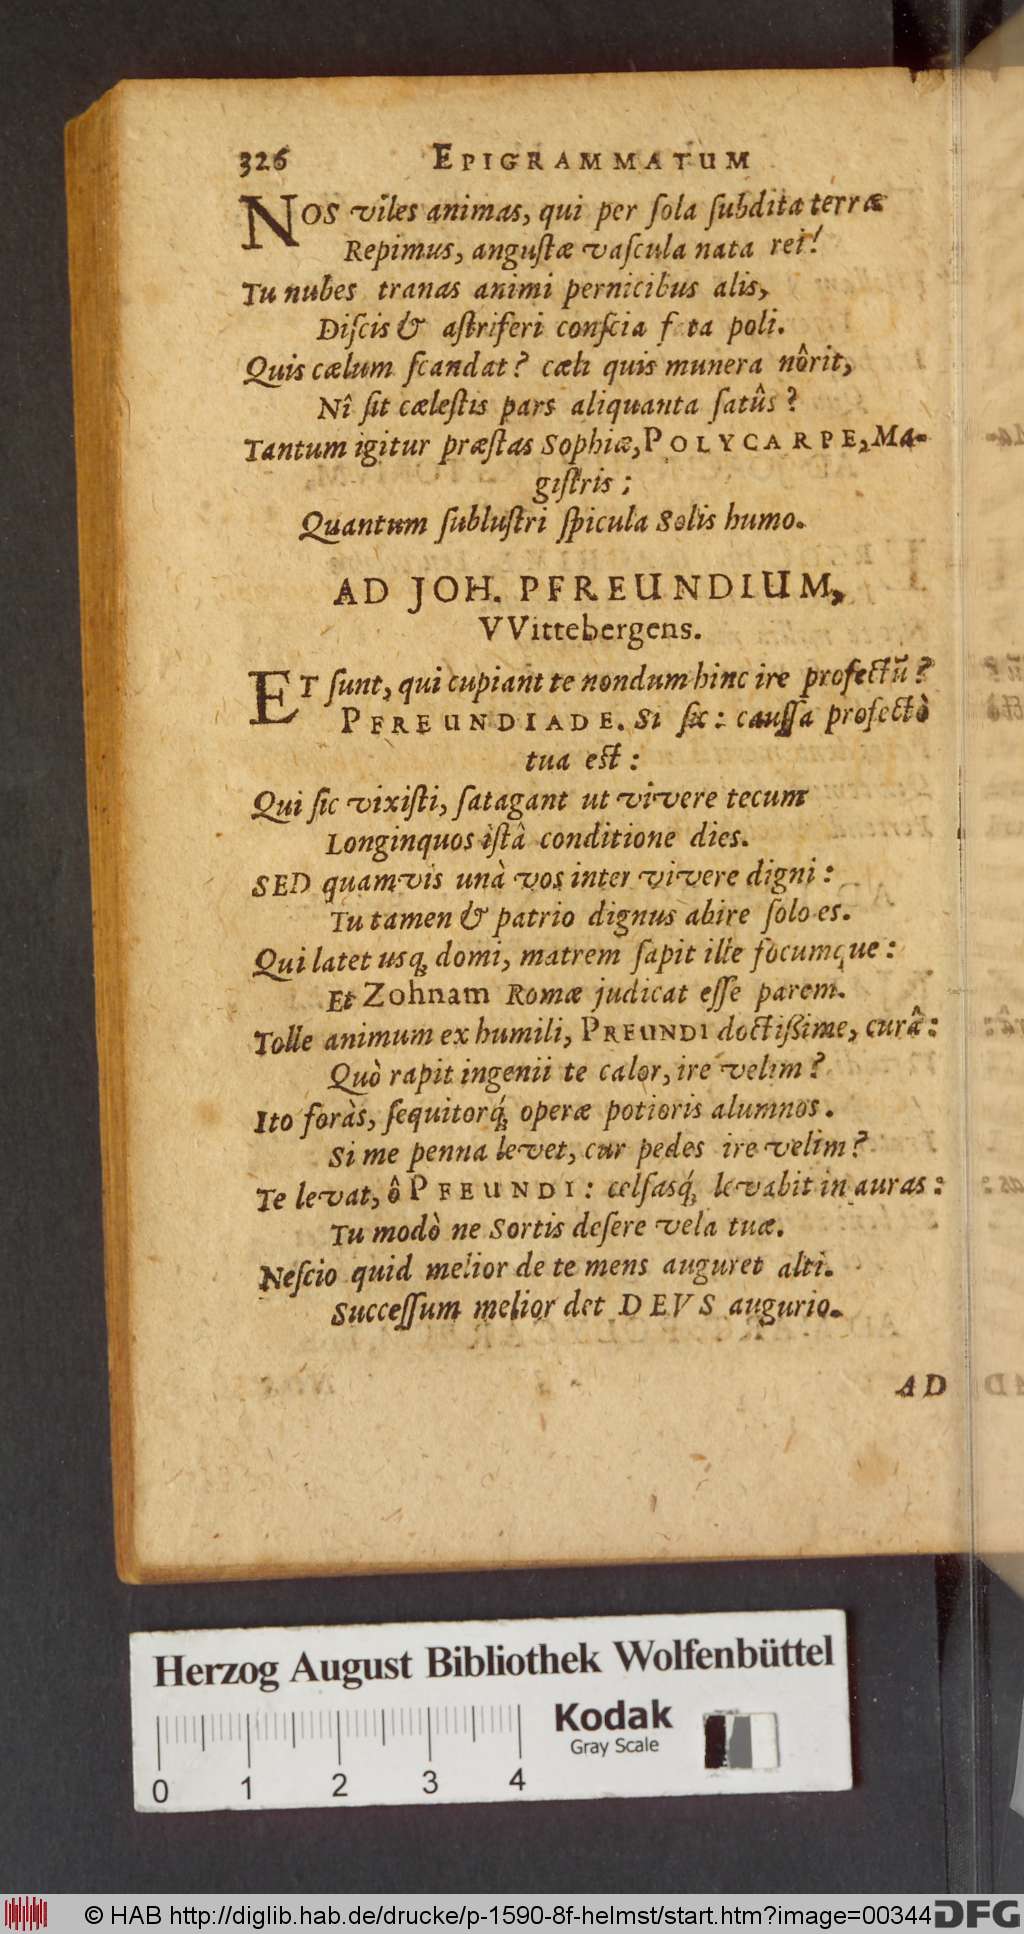 326 EPIGRAMMATUM
NOS viles animas, qui per sola subdita terræ
Repimus, angustæ vascula nata rei!
Tu nubes tranas animi pernicibus alis,
Discis & astriferi conscia fata poli.
Quis cælum scandat? cæli quis munera nôrit,
Nî sit cælestis pars aliquanta satûs?
Tantum igitur præstas Sophiæ, POLYCARPE, Ma-
gistris;
Quantum sublustri spicula Solis humo.
AD JOH. PFREUNDIUM,
VVittebergens.
ET sunt, qui cupiant te nondum hinc ire profectũ?
PFREUNDIADE. Si sic: caussa profectò
tua est:
Qui sic vixisti, satagant ut vivere tecum
Longinquos istâ conditione dies.
SED quamvis unà vos inter vivere digni:
Tu tamen & patrio dignus abire solo es.
Qui latet usq; domi, matrem sapit ille focumque:
Et Zohnam Romæ judicat esse parem.
Tolle animum ex humili, PREUNDI doctißime, curâ:
Quò rapit ingenii te calor, ire velim?
Ito foràs, sequitorq́; operæ potioris alumnos.
Si me penna levet, cur pedes ire velim?
Te levat, ô PFEUNDI: celsasq́; levabit in auras:
Tu modò ne Sortis desere vela tuæ.
Nescio quid melior de te mens auguret alti.
Successum melior det DEVS augurio.
AD
Herzog August Bibliothek Wolfenbüttel
Kodak
Gray Scale
0 1 2 3 4
© HAB http://diglib.hab.de/drucke/p-1590-8f-helmst/start.htm?image=00344
DFG